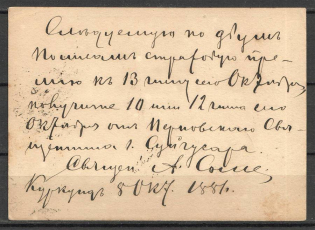 Следуемую по двумъ
полисамъ страховую пре-
мію къ 13 числу сего Октября,
получите 10 или 12 числа сего
Октября отъ Перновскаго Свя-
щенника І. Суйгусара.
Священ. А.
Куркундъ 8 Окт. 1881.